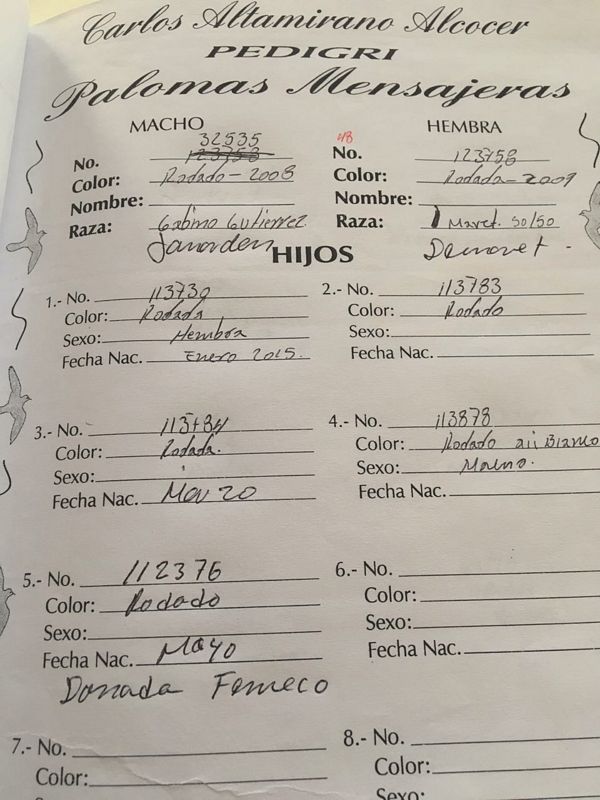 Carlos Altamirano Alcocer
PEDIGRI
Palomas Mensajeras
MACHO
32535
No. 123758
Color: Rodado - 2008
Nombre:
Raza: Gabino Gutierrez
Janarden
48
HEMBRA
No. 123758
Color: Rodada - 2009
Nombre:
Raza: Maret. 50/50
HIJOS
1.- No. 113730
Color: Rodada
Sexo: Hembra
Fecha Nac. Enero 2015.
2.- No. 113783
Color: Rodado
Sexo:
Fecha Nac.
3.- No.
Color: Rodada.
Sexo:
Fecha Nac. Marzo
4.- No. 113878
Color: Rodado Blanco
Sexo:
Fecha Nac.
5.- No. 112376
Color: Rodado
Sexo:
Fecha Nac. Mayo
Donada Femeco
6.- No.
Color:
Sexo:
Fecha Nac.
7.- No.
Color:
8.- No.
Color:
Sexo: